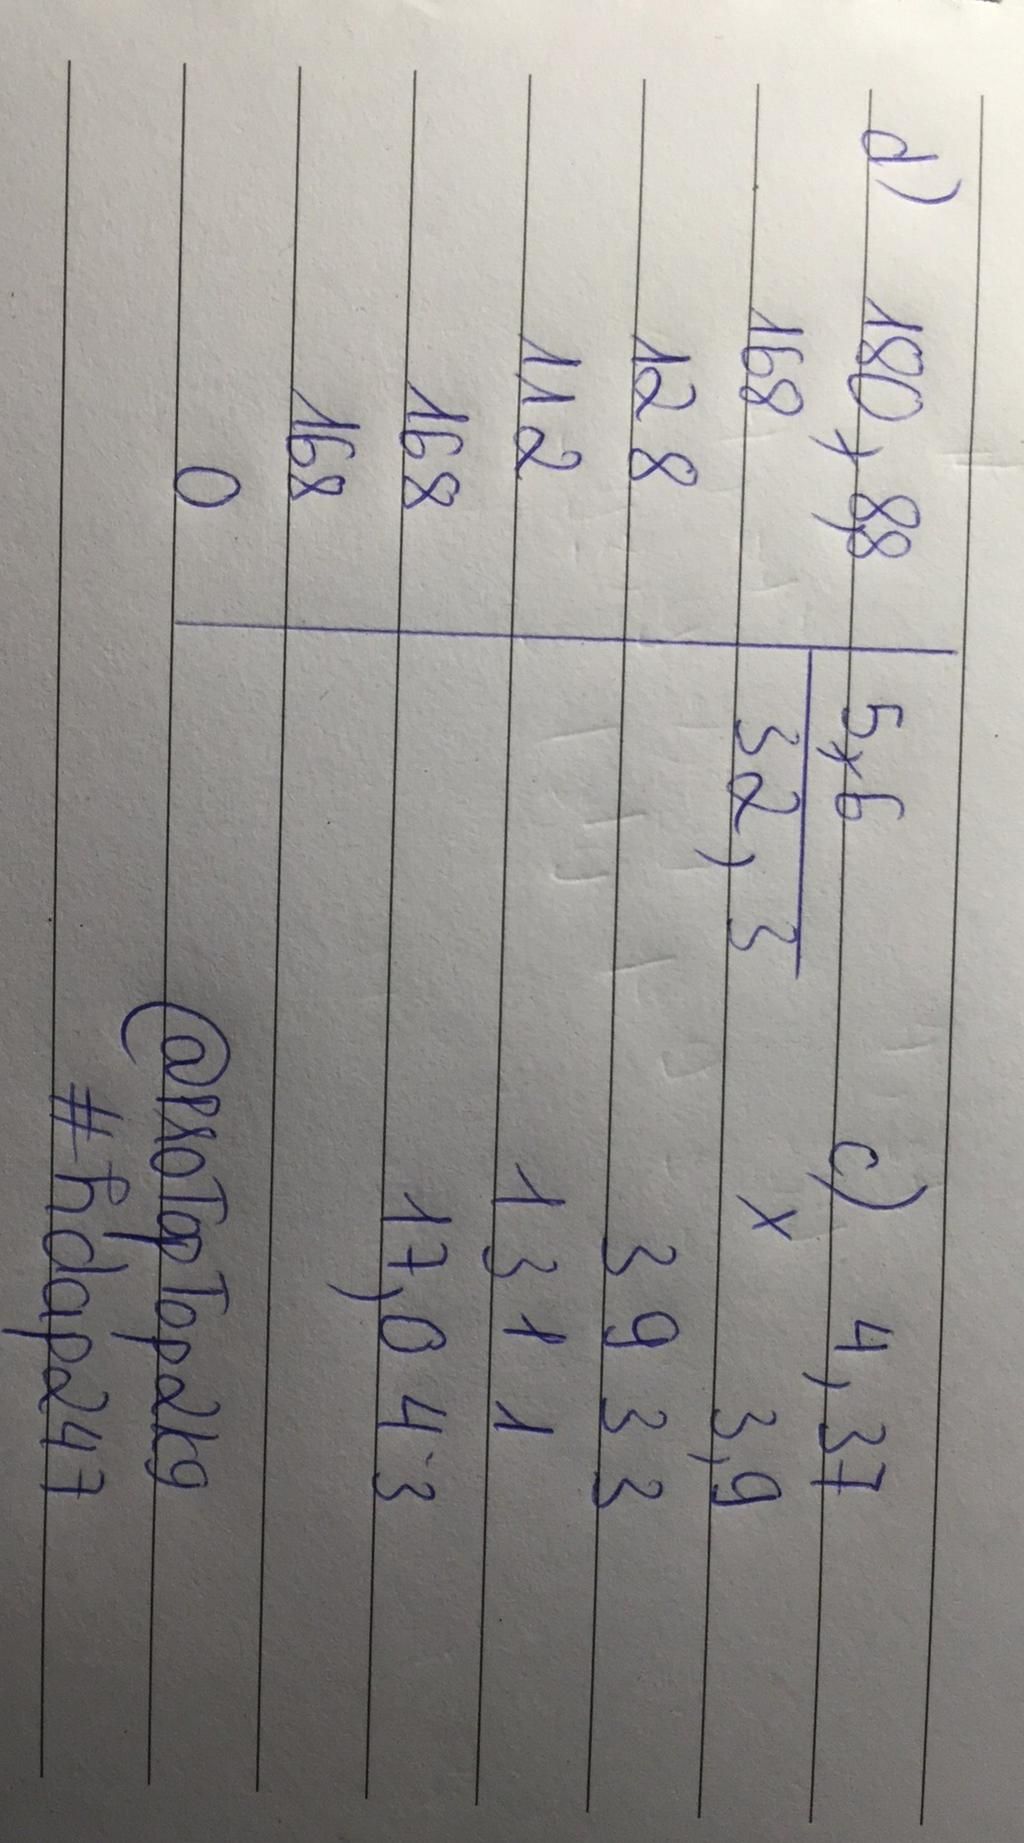 d) 180,88 5,6
168 32,3
128
112
168
168
0
c) 4,37
x 3,9
3 9 3 3
1 3 1 1
17,0 4 3
@ProTopTop2k9
#hdap247